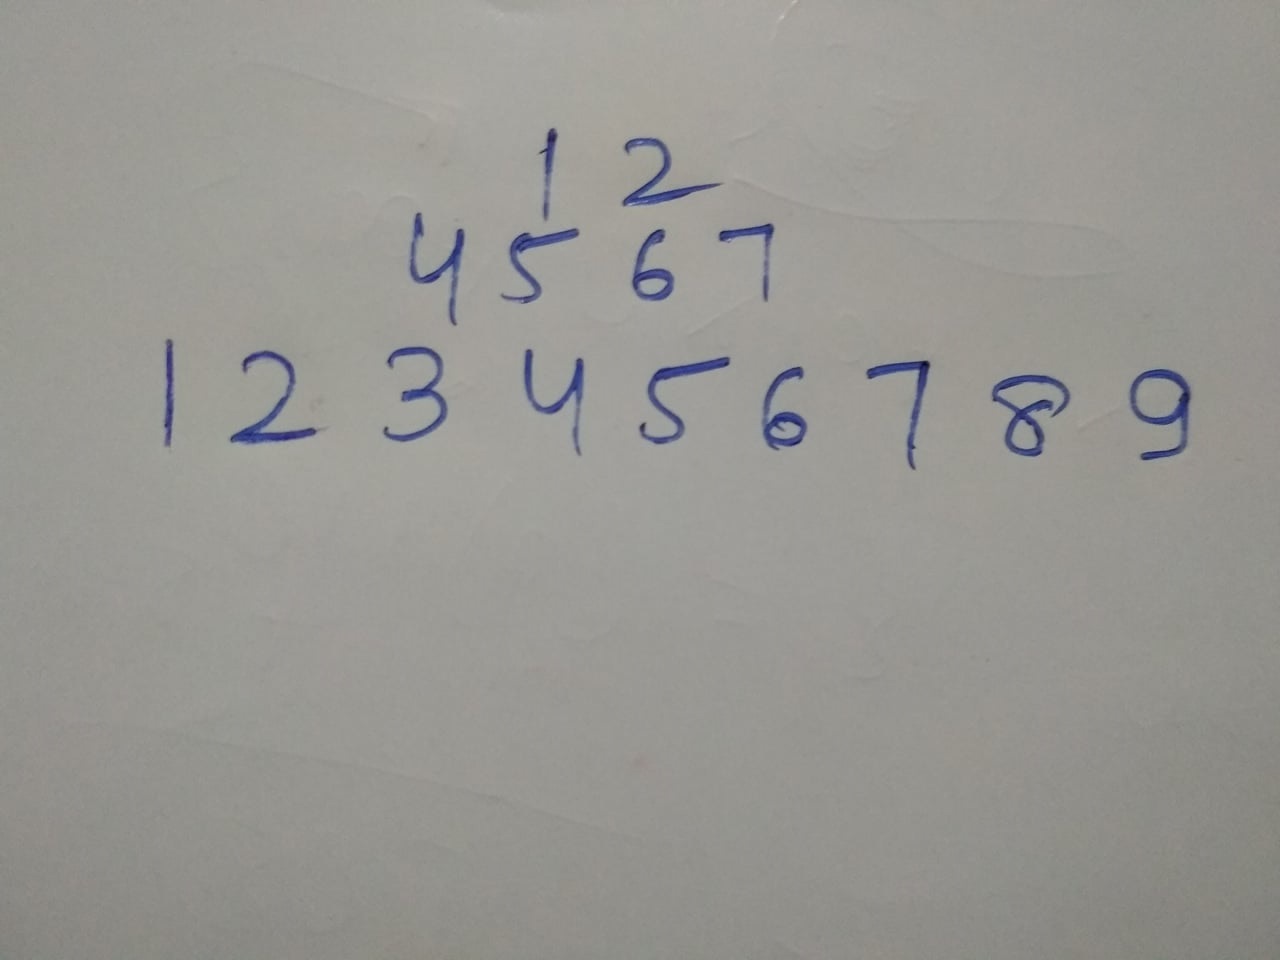 1 2
4 5 6 7
1 2 3 4 5 6 7 8 9